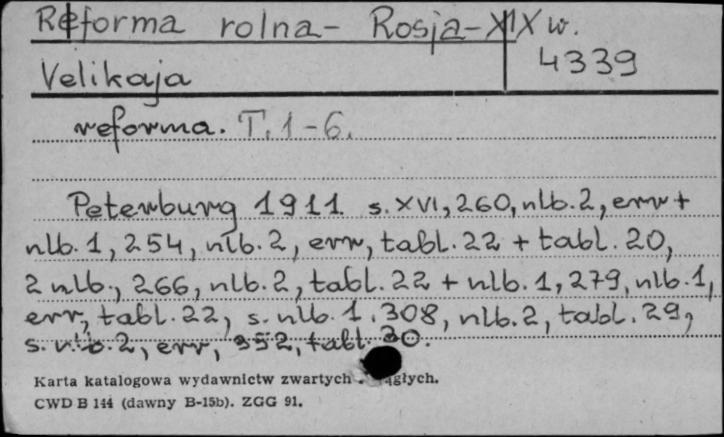 Reforma rolna - Rosja - XIX w.
4339
Velikaja
reforma. T. 1-6.
Peterburg 1911 s. XVI, 260, nlb. 2, err +
nlb. 1, 254, nlb. 2, err, tabl. 22 + tabl. 20,
2 nlb., 266, nlb. 2, tabl. 22 + nlb. 1, 279, nlb. 1,
err, tabl. 22, s. nlb. 1, 308, nlb. 2, tabl. 29,
s. nlb. 2, err, 352, tabl. 30.
Karta katalogowa wydawnictw zwartych
CWD B 144 (dawny B-15b). ZGG 91.